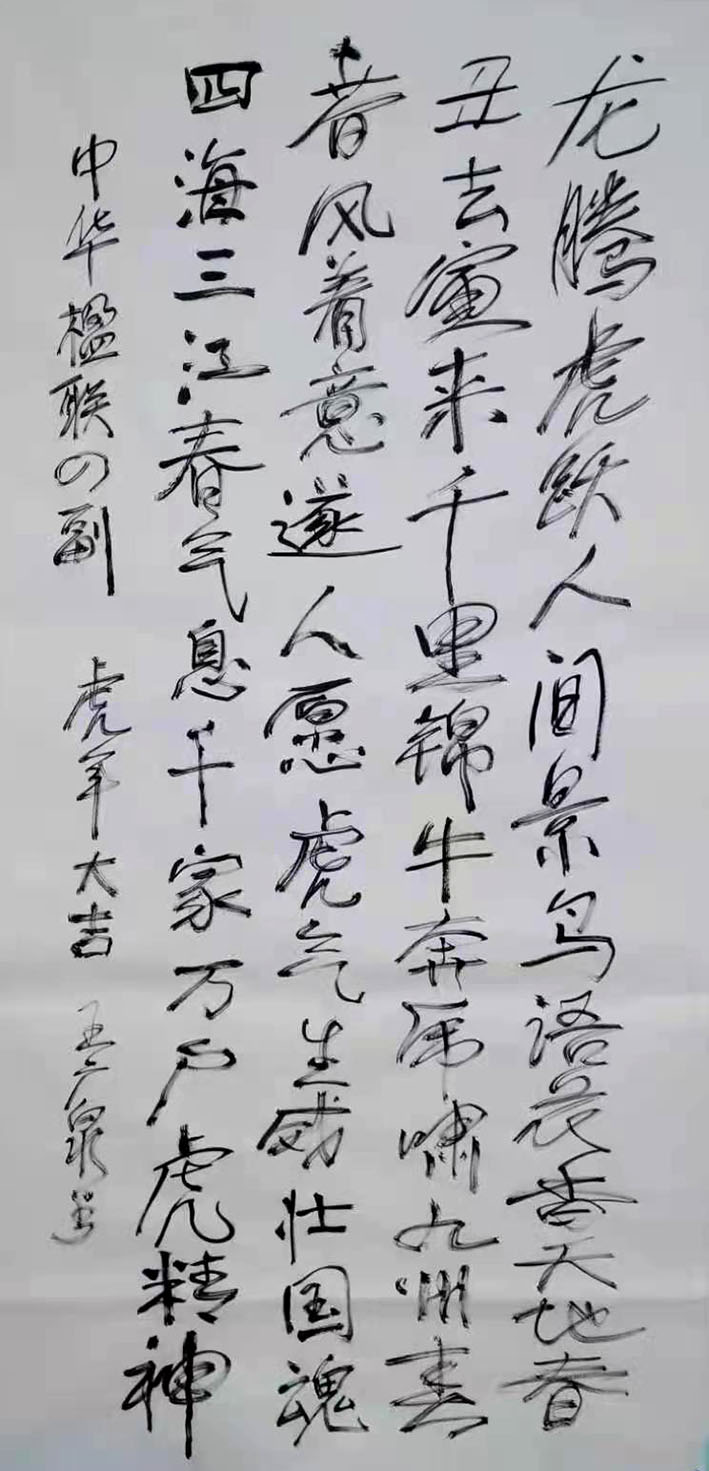 龙腾虎跃人间景鸟语花香天地春
丑去寅来千里锦牛奔虎啸九州春
春风着意遂人愿虎气生威壮国魂
四海三江春气息千家万户虎精神
中华楹联の副 虎年大吉 王广泉书